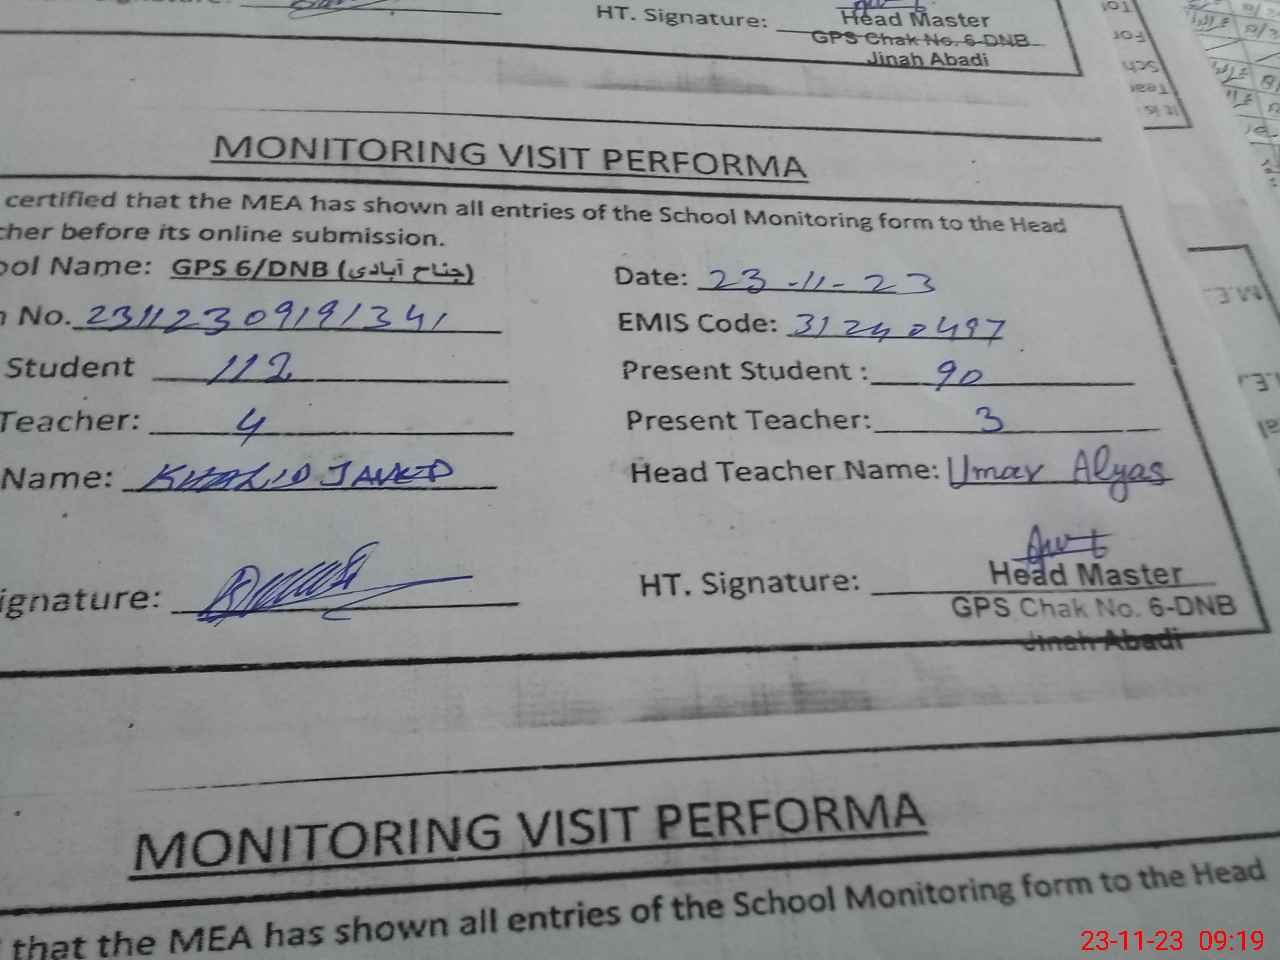 HT. Signature:
Head Master
GPS Chak No. 6-DNB
Jinah Abadi
MONITORING VISIT PERFORMA
certified that the MEA has shown all entries of the School Monitoring form to the Head
cher before its online submission.
ool Name: GPS 6/DNB (جناح آبادی) Date: 23-11-23
No. 23112309191341 EMIS Code: 31240497
Student 112 Present Student : 90
Teacher: 4 Present Teacher: 3
Name: KHALID JAVED Head Teacher Name: Umar Alyas
ignature: HT. Signature:
Head Master
GPS Chak No. 6-DNB
Jinah Abadi
MONITORING VISIT PERFORMA
that the MEA has shown all entries of the School Monitoring form to the Head
23-11-23 09:19